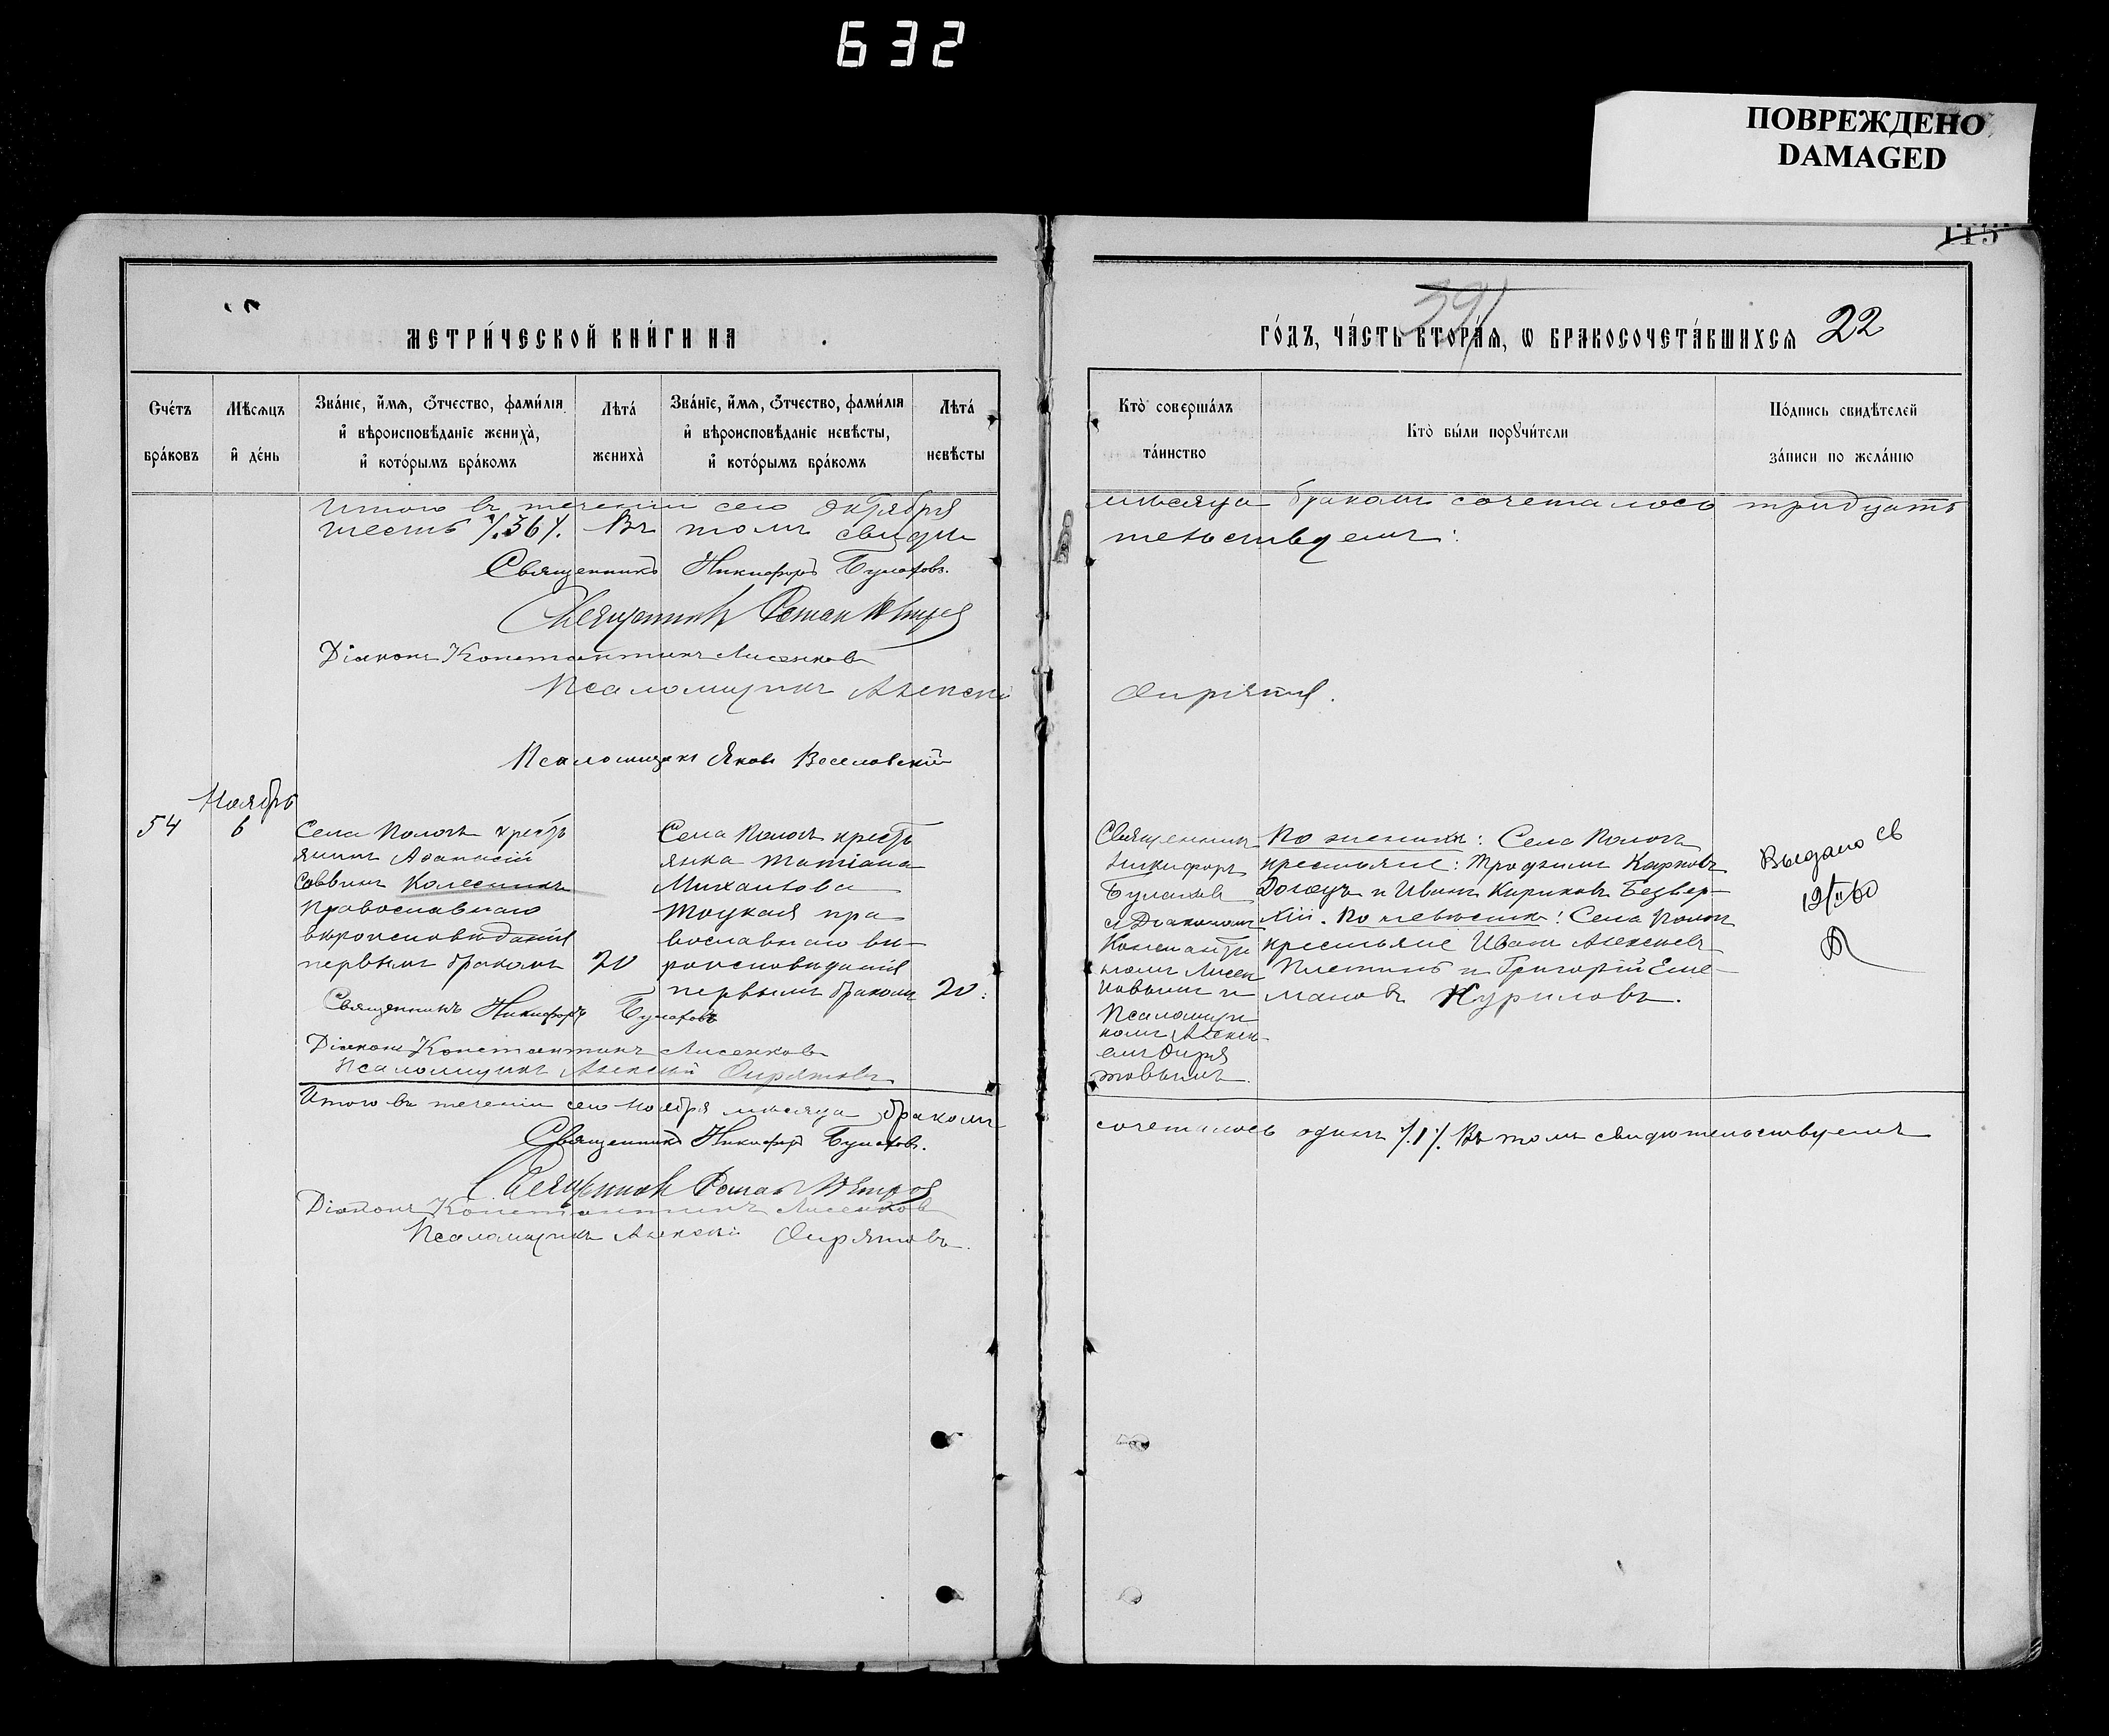 632
ПОВРЕЖДЕНО
DAMAGED
115
391
МЕТРИ́ЧЕСКОЙ КНИ́ГИ НА
ГО́ДЪ, ЧА́СТЬ ВТОРА́Я, Ѡ БРАКОСОЧЕТА́ВШИХСЯ 22
Сче́тъ бра́ковъ
Мѣ́сяцъ и҆ де́нь
Зва́нїе, и҆́мѧ, ѻ҆́тчество, фами́лїѧ и҆ вѣроисповѣ́данїе жениха̀, и҆ кото́рымъ бра́комъ
Лѣта̀ жениха̀
Зва́нїе, и҆́мѧ, ѻ҆́тчество, фами́лїѧ и҆ вѣроисповѣ́данїе невѣ́сты, и҆ кото́рымъ бра́комъ
Лѣта̀ невѣ́сты
Кто̀ соверша́лъ та́инство
Кто̀ бы́ли порꙋчи́тели
По́дпись свидѣ́телей за́писи по жела́нїю
Итого въ теченіи сего Октября
мѣсяца бракомъ сочеталось тридцать
шесть /.36/. Въ томъ свидѣ
тельствуемъ:
Священникъ Никифоръ
Священникъ Роман
Діаконъ Константинъ Лисенков
Псаломщикъ Алексѣй
Псаломщикъ Яковъ Веселовскій
Ноябрь
54
6
Села Пологъ кресть
янинъ Афанасій
Саввинъ Колесникъ
православнаго
вѣроисповѣданія
первымъ бракомъ
20
Села Пологъ кресть
янка Татіана
Михайлова
Троцкая пра
вославнаго вѣ-
роисповѣданія
первымъ бракомъ
20.
Священникъ
Никифоръ
съ Діакономъ
Константи
номъ Лисен
ковымъ и
Псаломщи
комъ Алексѣ-
емъ
По женихѣ: Села Пологъ
крестьяне: Трофимъ Карповъ
и Иванъ Кириковъ Безвер-
хій. По невѣстѣ: Села Пологъ
крестьяне Иванъ Алексѣевъ
и Григорій Еме-
льяновъ Куриловъ.
Выдано св
Священникъ Никифоръ
Діаконъ Константинъ Лисенковъ
Псаломщикъ Алексѣй
Итого въ теченіи сего Ноября мѣсяца бракомъ
сочеталось одинъ /.1/. Въ томъ свидѣтельствуемъ
Священникъ Никифоръ
Священник Роман
Діаконъ Константинъ Лисенков
Псаломщикъ Алексѣй